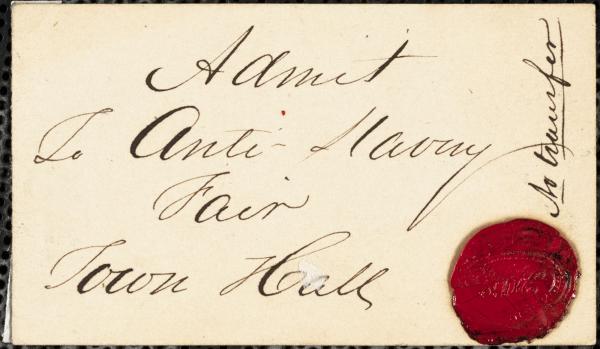 Admit
To Anti-Slavery
Fair
Town Hall
No transfer